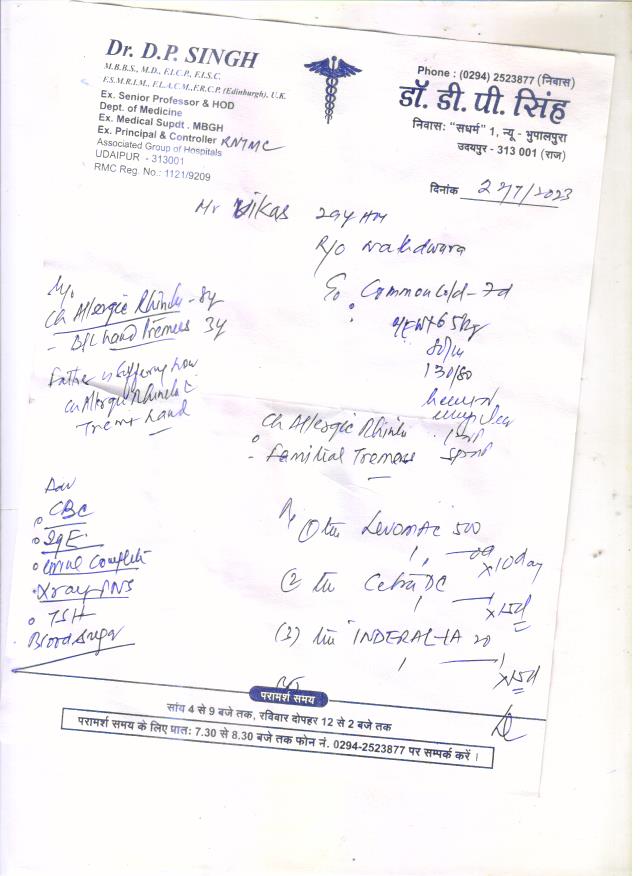 Dr. D.P. SINGH
M.B.B.S., M.D., F.I.C.P., F.I.S.C.
F.S.M.R.I.M., F.I.A.C.M., F.R.C.P. (Edinburgh), U.K.
Ex. Senior Professor & HOD
Dept. of Medicine
Ex. Medical Supdt. MBGH
Ex. Principal & Controller RNTMC
Associated Group of Hospitals
UDAIPUR - 313001
RMC Reg. No.: 1121/9209
Phone : (0294) 2523877 (निवास)
डॉ. डी. पी. सिंह
निवासः "सधर्म" 1, न्यू - भुपालपुरा
उदयपुर - 313 001 (राज)
दिनांक 22/7/2023
Mr Vikas 29y
R/o
Common Cold - 7d
65kg
130/80
Ch Allergic Rhinitis - 8y
- B/L hand Tremors 3y
Father is suffering
Ch Allergic Rhinitis
hand
Ch Allergic Rhinitis
- Familial Tremors
Adv
CBC
IgE
Urine Complete
Xray PNS
TSH
Blood Sugar
① LEVOMAC 500
x 10 day
② DC
x 15d
(3) INDERAL-LA 20
x 15d
परामर्श समय
सांय 4 से 9 बजे तक, रविवार दोपहर 12 से 2 बजे तक
परामर्श समय के लिए प्रातः 7.30 से 8.30 बजे तक फोन नं. 0294-2523877 पर सम्पर्क करें ।